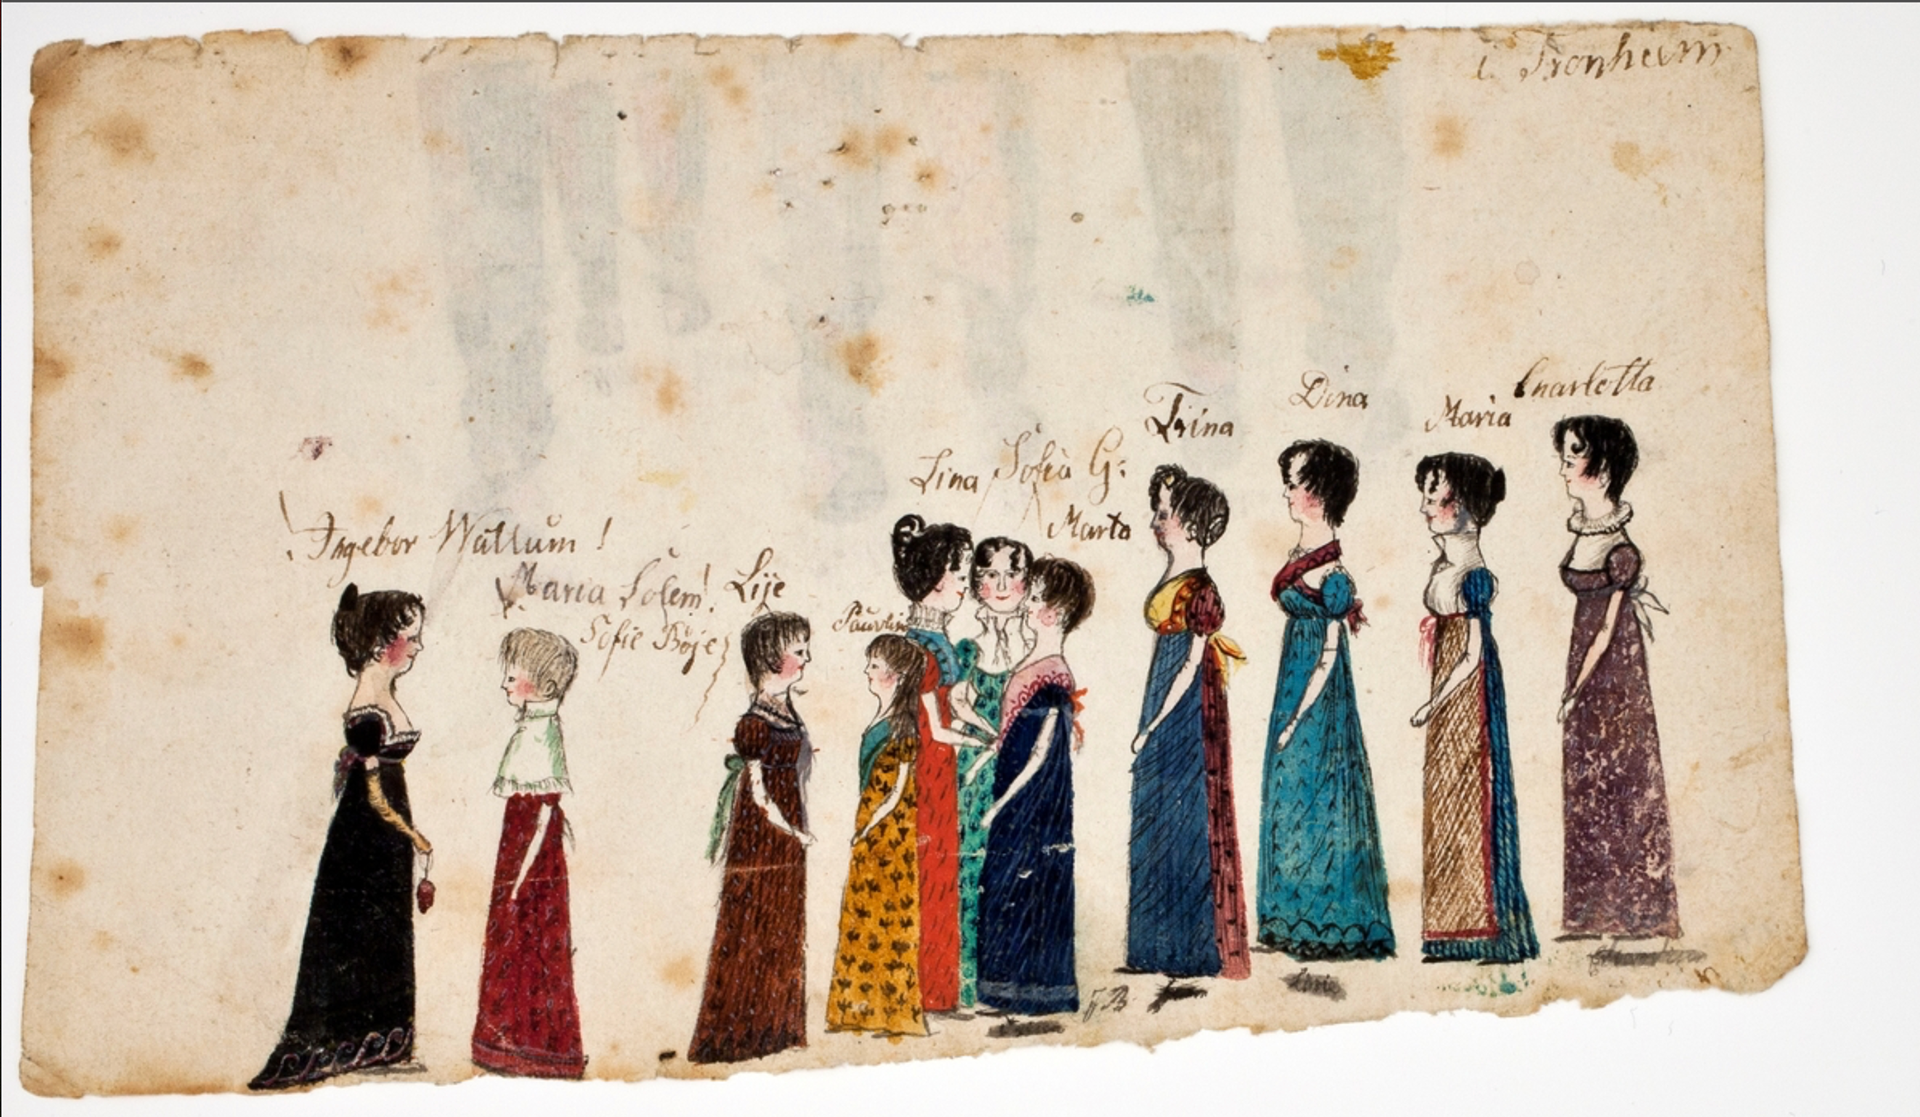 i Tronheim
Charlotta
Dina
Maria
Trina
Sofia G:
Lina
Marta
Ingebor Wallum!
Maria Solem!
Lise
Sofie Böje
Paulin